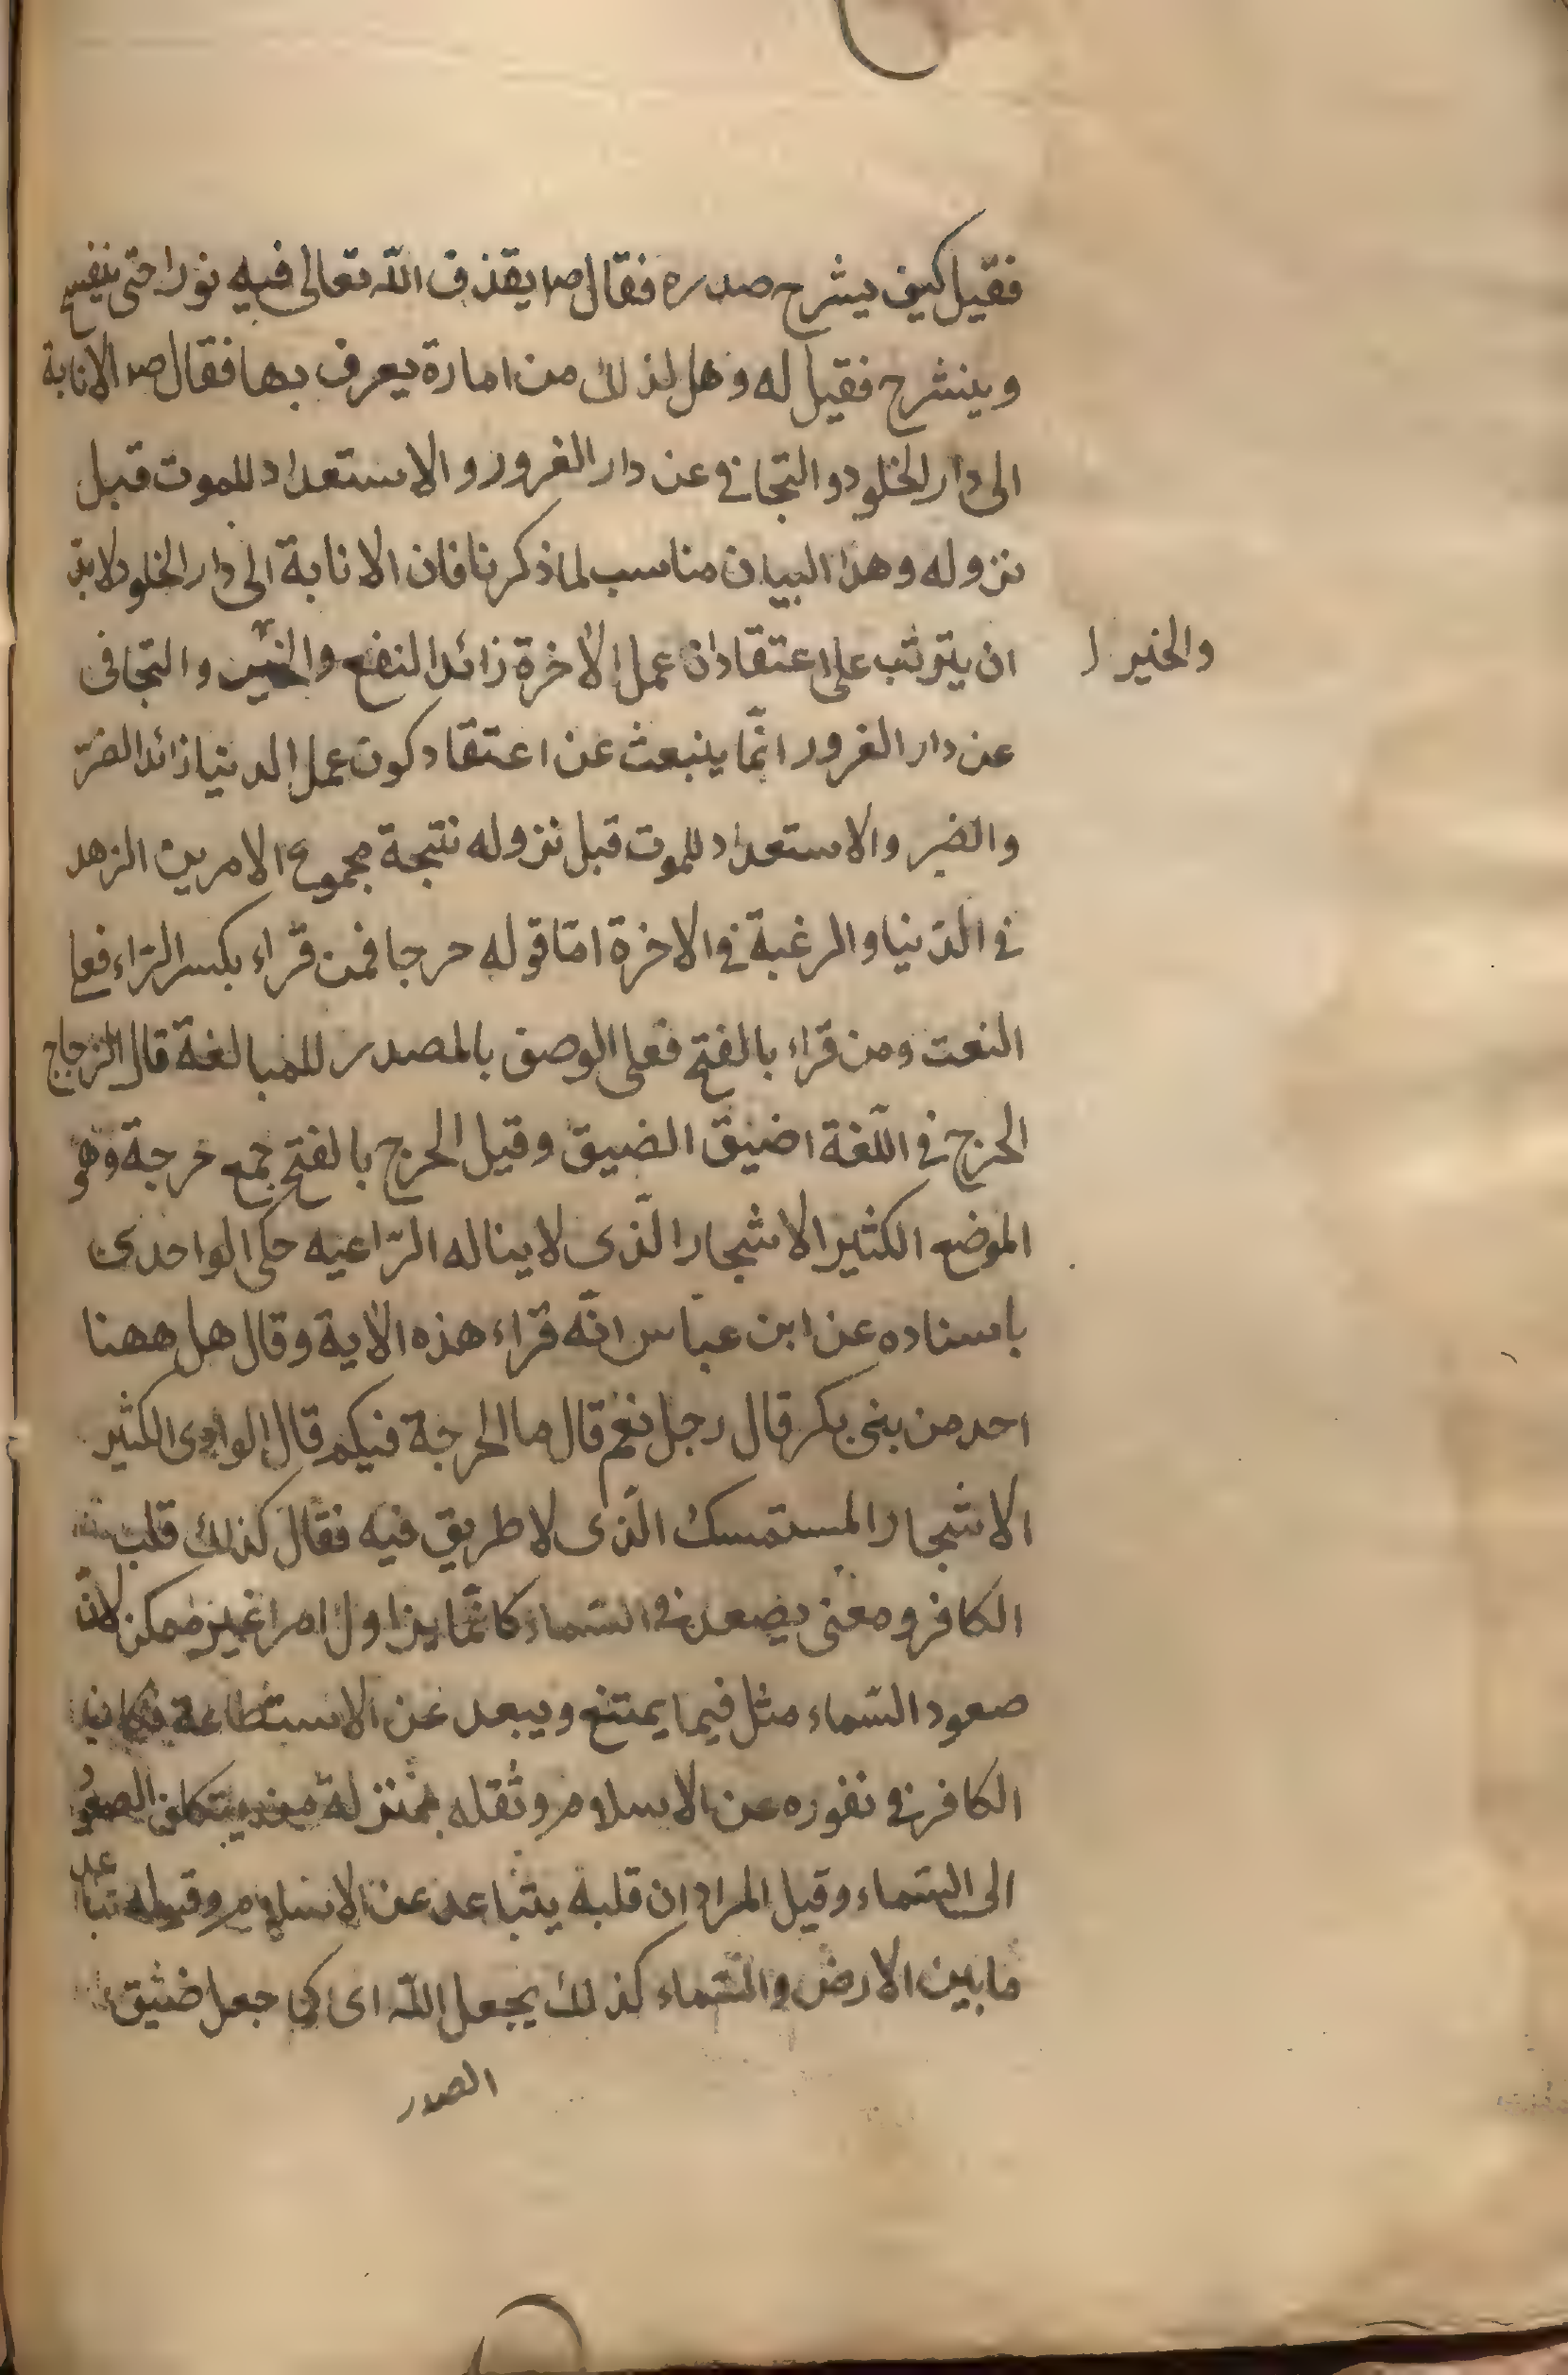 فقيل كيف يشرح صدره فقال ص يقذف الله تعالى فيه نورا حتى ينفسح
وينشرح فقيل له وهل لذلك من امارة يعرف بها فقال ص الانابة
الى دار الخلود والتجافي عن دار الغرور والاستعداد للموت قبل
نزوله وهذا البيان مناسب لما ذكرنا فان الانابة الى دار الخلود لابد
ان يترتب على اعتقاد ان عمل الآخرة زائد النفع والخير والتجافى
والخير
عن دار الغرور انّما ينبعث عن اعتقاد كون عمل الدنيا زائد الضرّ
والضير والاستعداد للموت قبل نزوله نتيجة مجموع الامرين الزهد
في الدّنيا والرغبة في الاخرة امّا قوله حرجا فمن قراء بكسر الرّاء فعلى
النعت ومن قراء بالفتح فعلى الوصف بالمصدر للمبالغة قال الزجاج
الحرج في اللّغة اضيق الضيق وقيل الحرج بالفتح جمع حرجة وهو
الموضع الكثير الاشجار الّذى لا يناله الرّاعيه حكى الواحدى
باسناده عن ابن عبّاس انّه قراء هذه الآية وقال هل ههنا
احد من بنى بكر قال رجل نعم قال ما الحرجة فيكم قال الوادى الكثير
الاشجار المستمسك الّذى لا طريق فيه فقال كذلك قلب
الكافر ومعنى يصعد في السّماء كانّما يزاول امرا غير ممكن لانّ
صعود السّماء مثل فيما يمتنع ويبعد عن الاستطاعة فكان
الكافر في نفوره عن الاسلام وثقله بمنزلة من يتكلف الصعود
الى السّماء وقيل المراد ان قلبه يتباعد عن الاسلام وقبوله تباعد
ما بين الارض والسّماء كذلك يجعل الله اى كما جعل ضيق
الصدر